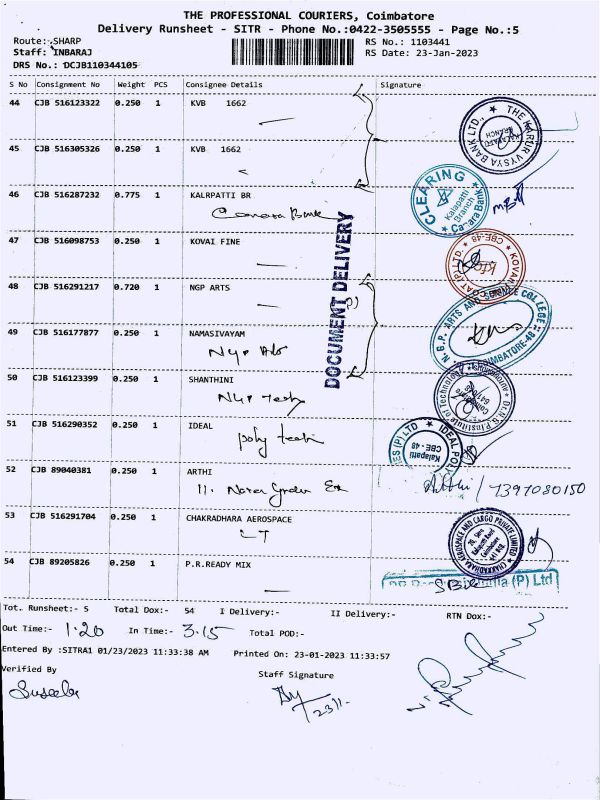 THE PROFESSIONAL COURIERS, Coimbatore
Delivery Runsheet - SITR - Phone No.:0422-3505555 - Page No.:5
Route: SHARP
RS No.: 1103441
Staff: INBARAJ
RS Date: 23-Jan-2023
DRS No.: DCJB110344105
S No Consignment No Weight PCS Consignee Details Signature
44 CJB 516123322 0.250 1 KVB 1662
THE KARUR VYSYA BANK LTD.,
45 CJB 516305326 0.250 1 KVB 1662
46 CJB 516287232 0.775 1 KALRPATTI BR
Canara Bank
CLEARING
Kalapatti
Branch
Canara Bank
47 CJB 516098753 0.250 1 KOVAI FINE
DOCUMENT DELIVERY
48 CJB 516291217 0.720 1 NGP ARTS
N.G.P. ARTS AND SCIENCE COLLEGE
COIMBATORE-48
49 CJB 516177877 0.250 1 NAMASIVAYAM
50 CJB 516123399 0.250 1 SHANTHINI
51 CJB 516290352 0.250 1 IDEAL
poly tech
IDEAL POLY
Kalapatti
CBE - 48
52 CJB 89040381 0.250 1 ARTHI
11.
7397080150
53 CJB 516291704 0.250 1 CHAKRADHARA AEROSPACE
LT
CHAKRADHARA AEROSPACE AND CARGO PRIVATE LIMITED
54 CJB 89205826 0.250 1 P.R.READY MIX
India (P) Ltd
Tot. Runsheet:- 5 Total Dox:- 54 I Delivery:- II Delivery:- RTN Dox:-
Out Time:- 1.20 In Time:- 3.15 Total POD:-
Entered By :SITRA1 01/23/2023 11:33:38 AM Printed On: 23-01-2023 11:33:57
Verified By
Staff Signature
Suseela